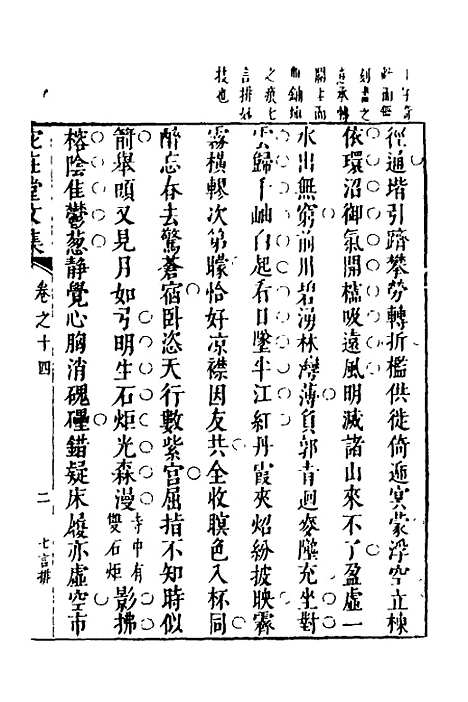 徑通堦引躋攀勞轉折檻供徙倚遁寞蒙浮空立棟
依環沼御氣開櫺吸遠風明滅諸山來不了盈虛一
水出無窮前川碧湧林灣薄負郭青迴麥隴充坐對
雲歸千岫白起看日墜半江紅丹霞夾炤紛披映霖
霧橫轇次第矇恰好凉襟因友共全收瞑色入杯同
醉忘春去驚蒼宿臥恣天行數紫宮屈指不知時似
箭舉頭又見月如弓明生石炬光森漫寺中有雙石炬影拂
榕陰佳鬱葱静覺心胸消磈礧錯疑床屧亦虛空市
堂文集 卷之十四 二 七言排